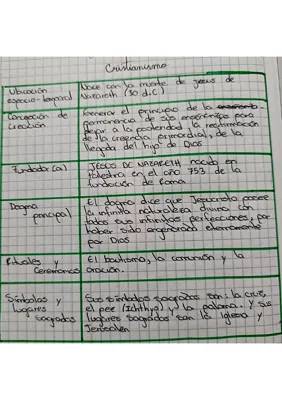 Cristianismo
Ubicación
espacio-temporal
Nace con la muerte de jesus de
Nazareth (30 d.C)
Concepción de
creación
generar el principio de la
permanencia de sus enseñanzas para
dejar a la posteridad la reafirmación
de la creencia primordial, de la
llegada del hijo de Dios
Fundador(a)
JESÚS DE NAZARETH nacido en
palestina en el año 753 de la
fundación de Roma
Dogma
principal
El dogma dice que Jesucristo posee
la infinita naturaleza divina con
todas sus infinitas perfecciones, por
haber sido engendrado eternamente
por Dios
Rituales y
Ceremonias
El bautismo, la comunión y la
oración.
Símbolos y
lugares
sagrados
Sus símbolos sagrados son: la cruz,
el pez (Ichthys) y la paloma. y sus
lugares sagrados son la Iglesia y
Jerusalen